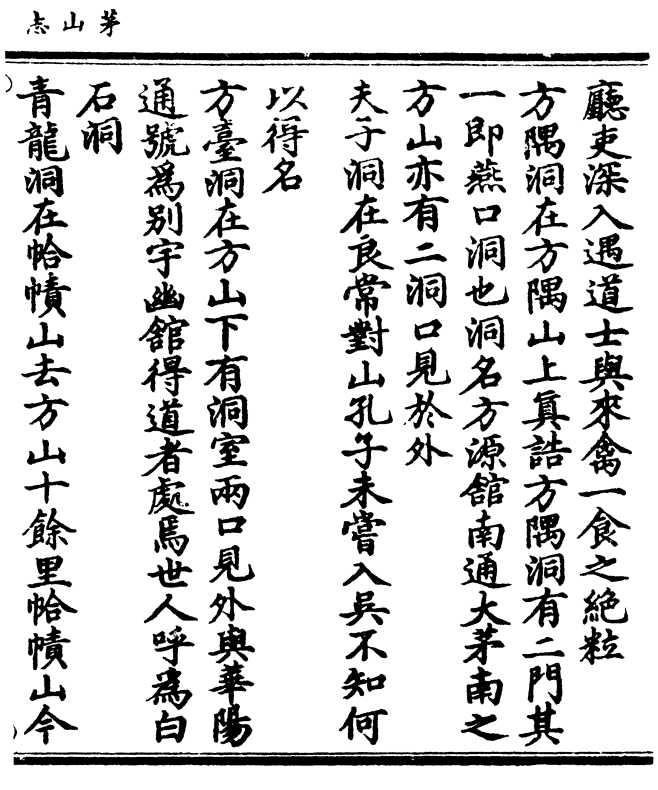 茅山志
廳吏深入遇道士與來禽一食之絶粒
方隅洞在方隅山上眞誥方隅洞有二門其
一即燕口洞也洞名方源舘南通大茅南之
方山亦有二洞口見於外
夫子洞在良常對山孔子未嘗入吳不知何
以得名
方臺洞在方山下有洞室兩口見外與華陽
通號爲别宇幽舘得道者處焉世人呼爲白
石洞
青龍洞在帢幘山去方山十餘里帢幘山今